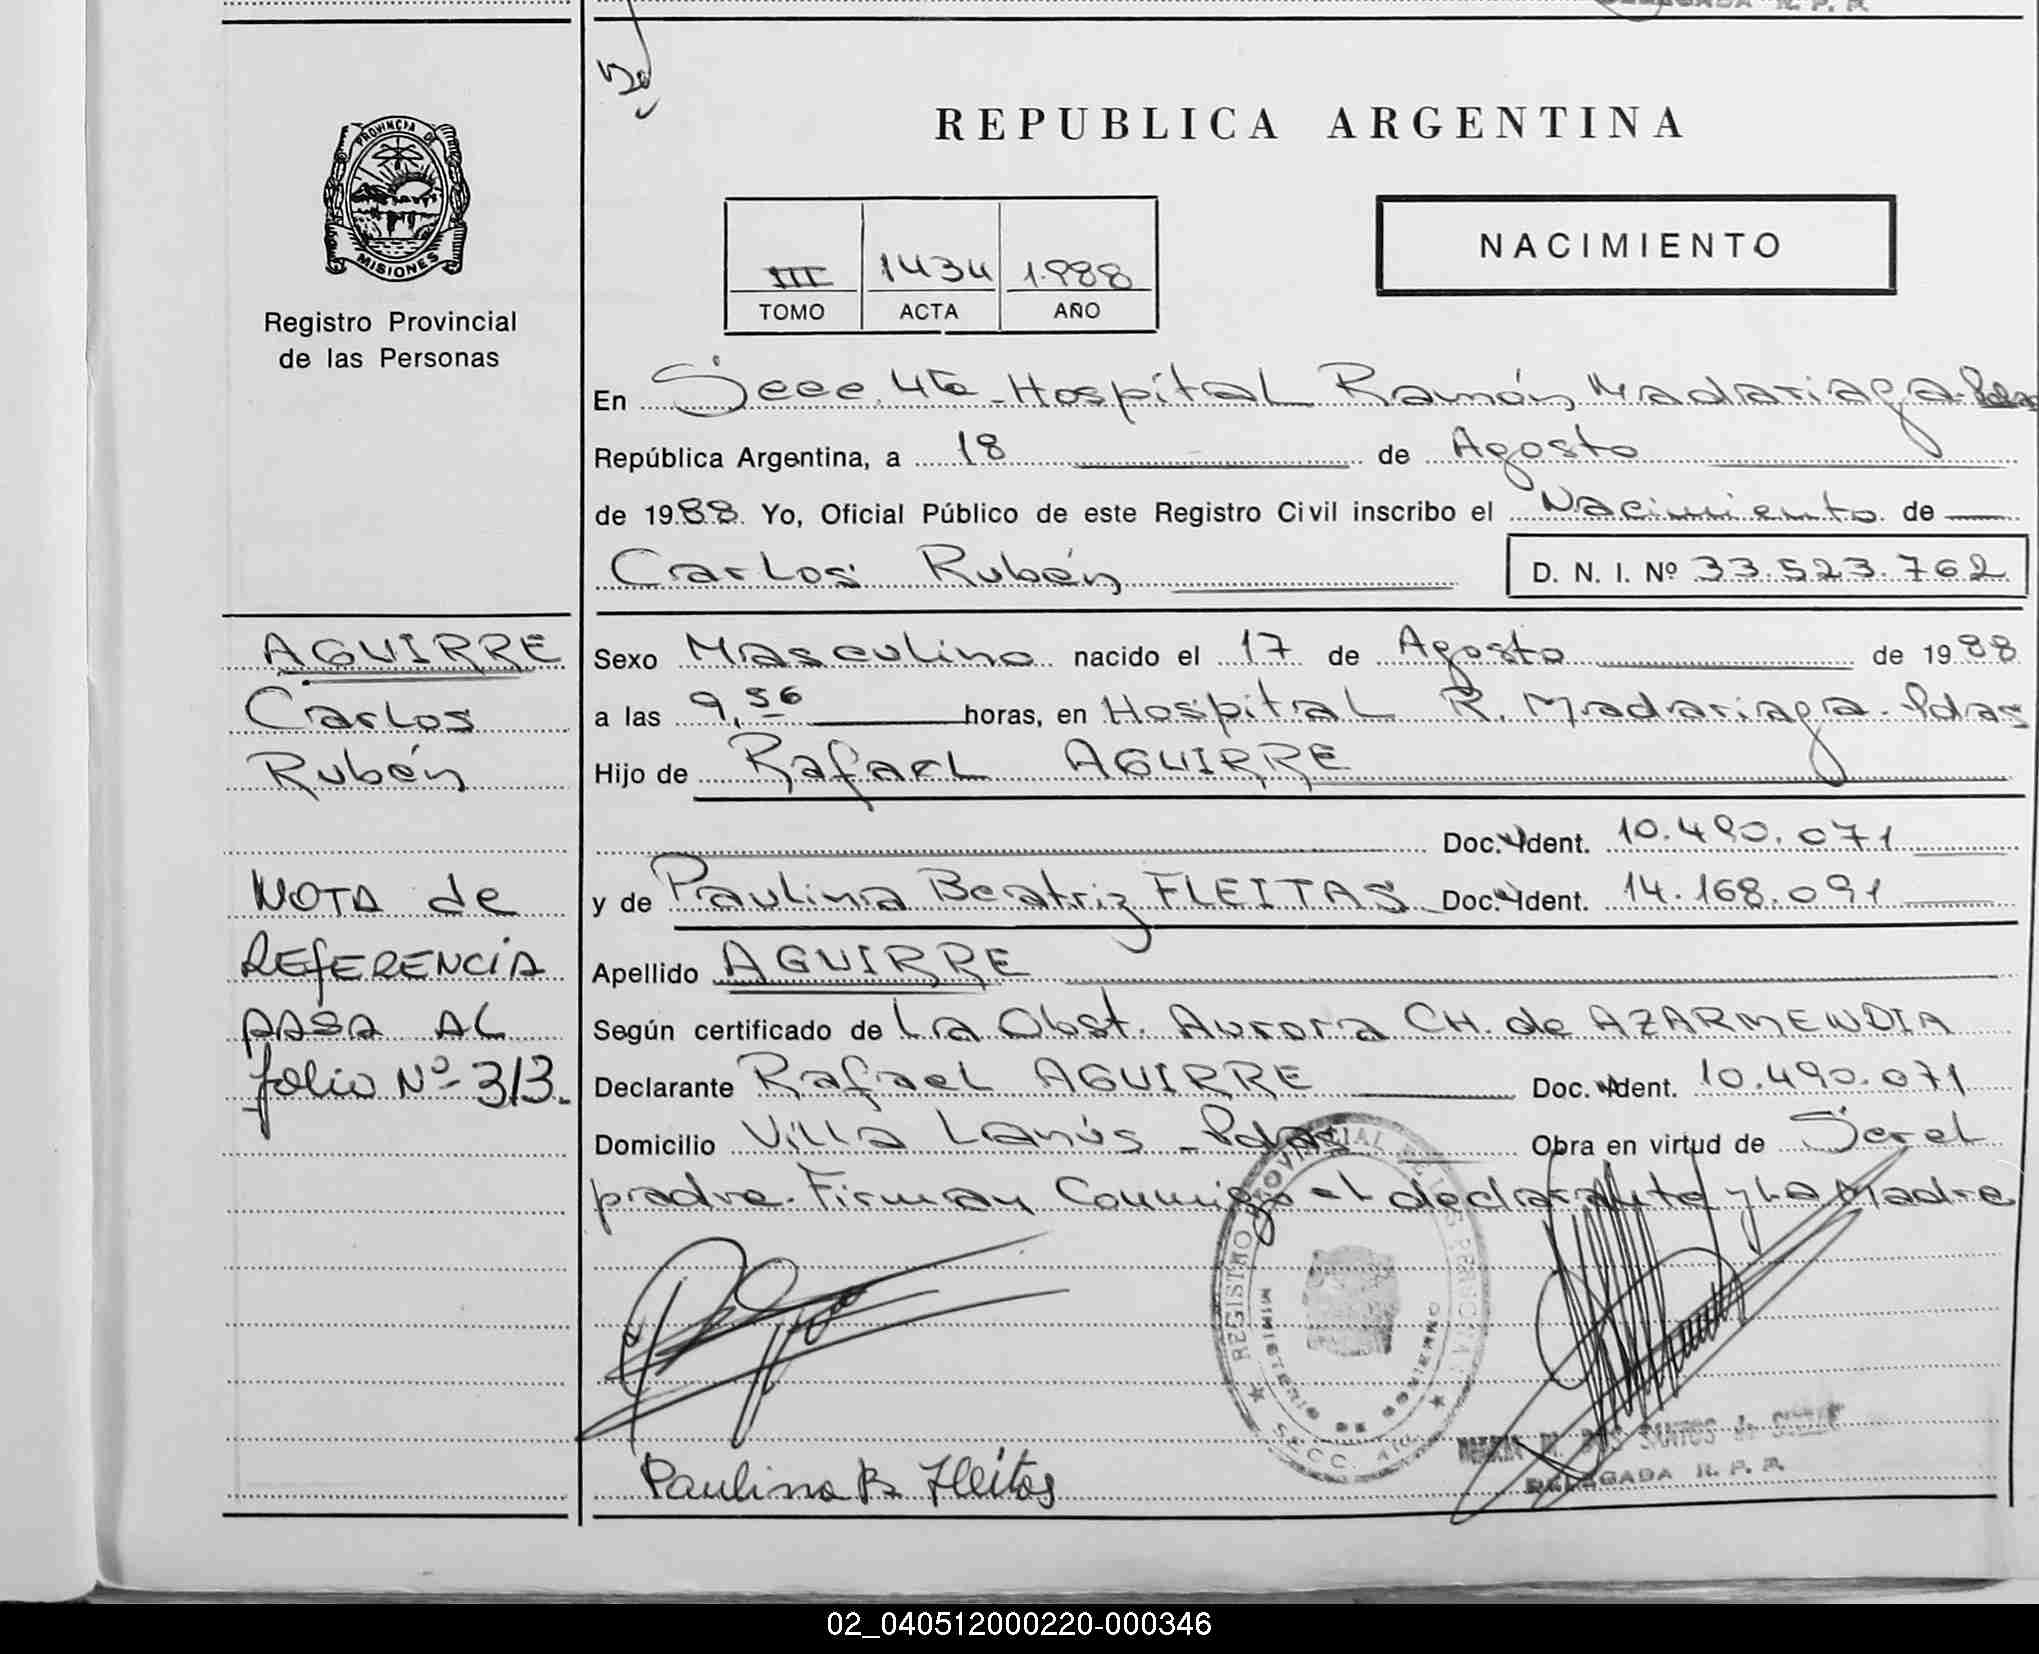 DELEGADA R. P. P.
PROVINCIA DE
MISIONES
Registro Provincial
de las Personas
REPUBLICA ARGENTINA
III 1434 1.988
TOMO ACTA AÑO
NACIMIENTO
En Secc. 4ta - Hospital Ramón Madariaga - Pdas
República Argentina, a 18 de Agosto
de 1988. Yo, Oficial Público de este Registro Civil inscribo el Nacimiento de
Carlos Rubén D. N. I. Nº 33.523.762
AGUIRRE
Carlos
Rubén
NOTA de
REfERENCIA
PASA AL
folio Nº 313.
Sexo Masculino nacido el 17 de Agosto de 1988
a las 9,56 horas, en Hospital R. Madariaga - Pdas
Hijo de Rafael AGUIRRE
Doc. Ident. 10.490.071
y de Paulina Beatriz FLEITAS Doc. Ident. 14.168.091
Apellido AGUIRRE
Según certificado de La Obst. Aurora CH. de AZARMENDIA
Declarante Rafael AGUIRRE Doc. Ident. 10.490.071
Domicilio Villa Lanús - Pdas Obra en virtud de Ser el
padre. Firman Conmigo el declarante y La Madre
REGISTRO PROVINCIAL DE LAS PERSONAS
MINISTERIO DE GOBIERNO
SECC. 4ta.
Paulina B Fleitas
M. DOS SANTOS de
DELEGADA R. P. P.
02_040512000220-000346